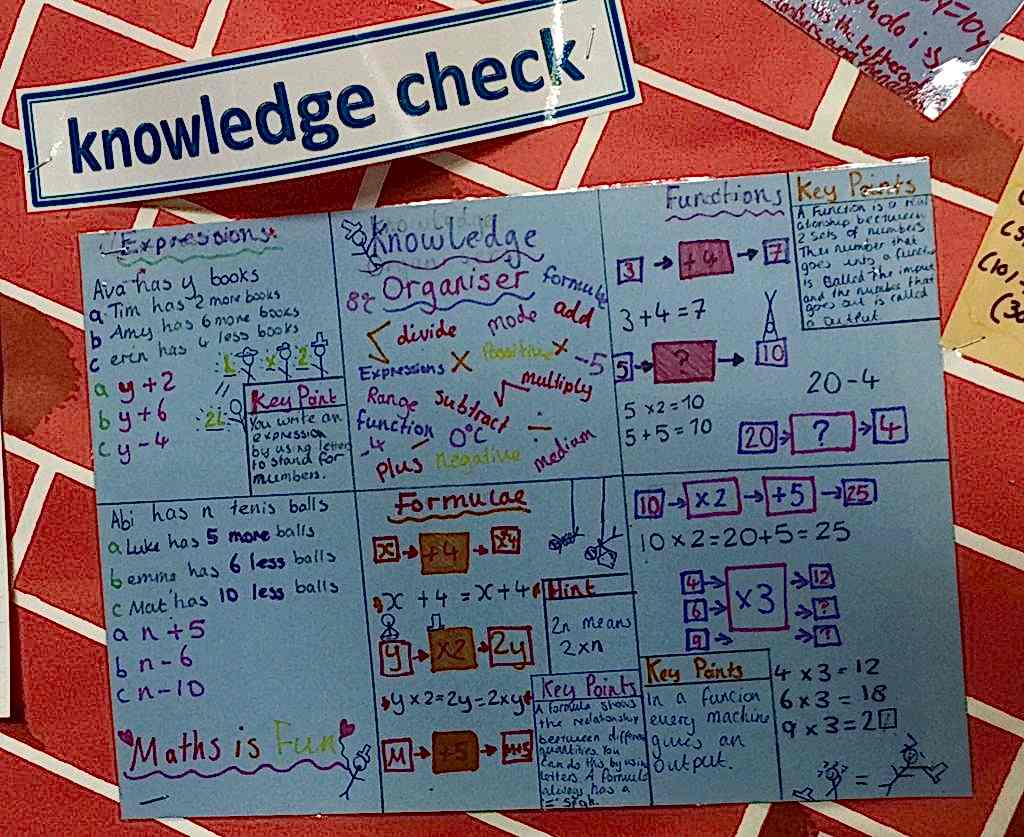 knowledge check
y=10y
you do is
Expressions
Ava has y books
a Tim has 2 more books
b Amy has 6 more books
c erin has 4 less books
a y + 2
b y + 6
c y - 4
Key Point
You write an
expression
by using letters
to stand for
numbers.
Knowledge
Organiser
formula
divide
mode
add
Expressions
×
Positive
×
-5
Range
Subtract
√
multiply
function
0°C
÷
-4
plus
negative
medium
Functions
3 → +4 → 7
3 + 4 = 7
5 → ? → 10
5 × 2 = 10
5 + 5 = 10
20 - 4
20 → ? → 4
Key Points
A Function is a
ationship between
2 sets of numbers
The number that
goes into a
is called the
and the number that
goes out is called
a output
Abi has n tenis balls
a Luke has 5 more balls
b emma has 6 less balls
c Mat has 10 less balls
a n + 5
b n - 6
c n - 10
Maths is Fun
Formulae
x → +4 → x4
x + 4 = x + 4
y → ×2 → 2y
y × 2 = 2y = 2xy
M → +5 → M+5
Hint
2n means
2 × n
Key Points
A formula shows
the relationship
between different
quantities. You
can do this by using
letters. A formula
always has a
"="
10 → ×2 → +5 → 25
10 × 2 = 20 + 5 = 25
4 → 12
6 → ×3 → ?
9 → ?
Key Points
In a funcion
every machine
gives an
output.
4 × 3 = 12
6 × 3 = 18
9 × 3 = 2?
=